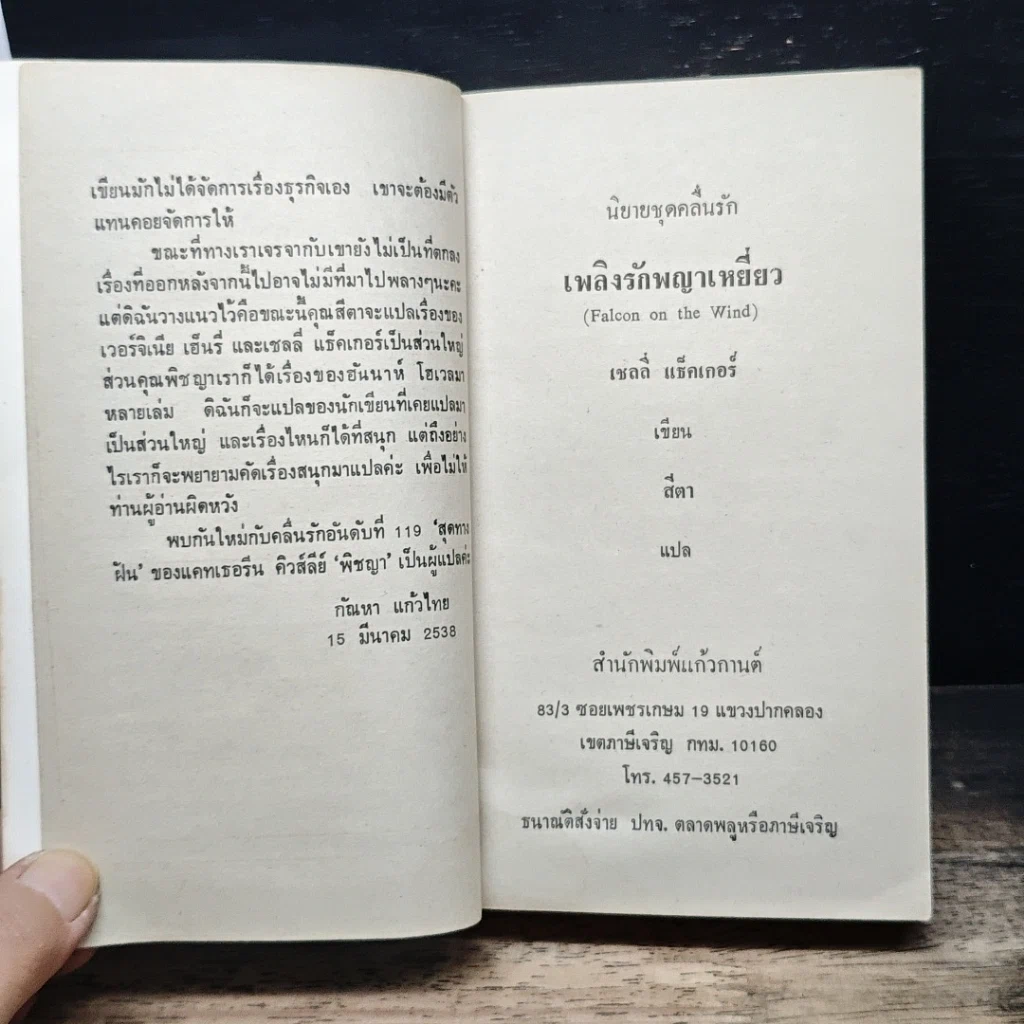 เขียนมักไม่ได้จัดการเรื่องธุรกิจเอง เขาจะต้องมีตัว
แทนคอยจัดการให้
ขณะที่ทางเราเจรจากับเขายังไม่เป็นที่ตกลง
เรื่องที่ออกหลังจากนี้ไปอาจไม่มีที่มาไปพลางๆนะคะ
แต่ดิฉันวางแนวไว้คือขณะนี้คุณสีตาจะแปลเรื่องของ
เวอร์จิเนีย เฮ็นรี่ และเชลลี่ แธ็คเกอร์เป็นส่วนใหญ่
ส่วนคุณพิชญาเราก็ได้เรื่องของฮันนาห์ โฮเวลมา
หลายเล่ม ดิฉันก็จะแปลของนักเขียนที่เคยแปลมา
เป็นส่วนใหญ่ และเรื่องไหนก็ได้ที่สนุก แต่ถึงอย่าง
ไรเราก็จะพยายามคัดเรื่องสนุกมาแปลค่ะ เพื่อไม่ให้
ท่านผู้อ่านผิดหวัง
พบกันใหม่กับคลื่นรักอันดับที่ 119 'สุดทาง
ฝัน' ของแคทเธอรีน คิวส์ลีย์ 'พิชญา' เป็นผู้แปลค่ะ
กัณหา แก้วไทย
15 มีนาคม 2538
นิยายชุดคลื่นรัก
เพลิงรักพญาเหยี่ยว
(Falcon on the Wind)
เชลลี่ แธ็คเกอร์
เขียน
สีตา
แปล
สำนักพิมพ์แก้วกานต์
83/3 ซอยเพชรเกษม 19 แขวงปากคลอง
เขตภาษีเจริญ กทม. 10160
โทร. 457-3521
ธนาณัติสั่งจ่าย ปทจ. ตลาดพลูหรือภาษีเจริญ